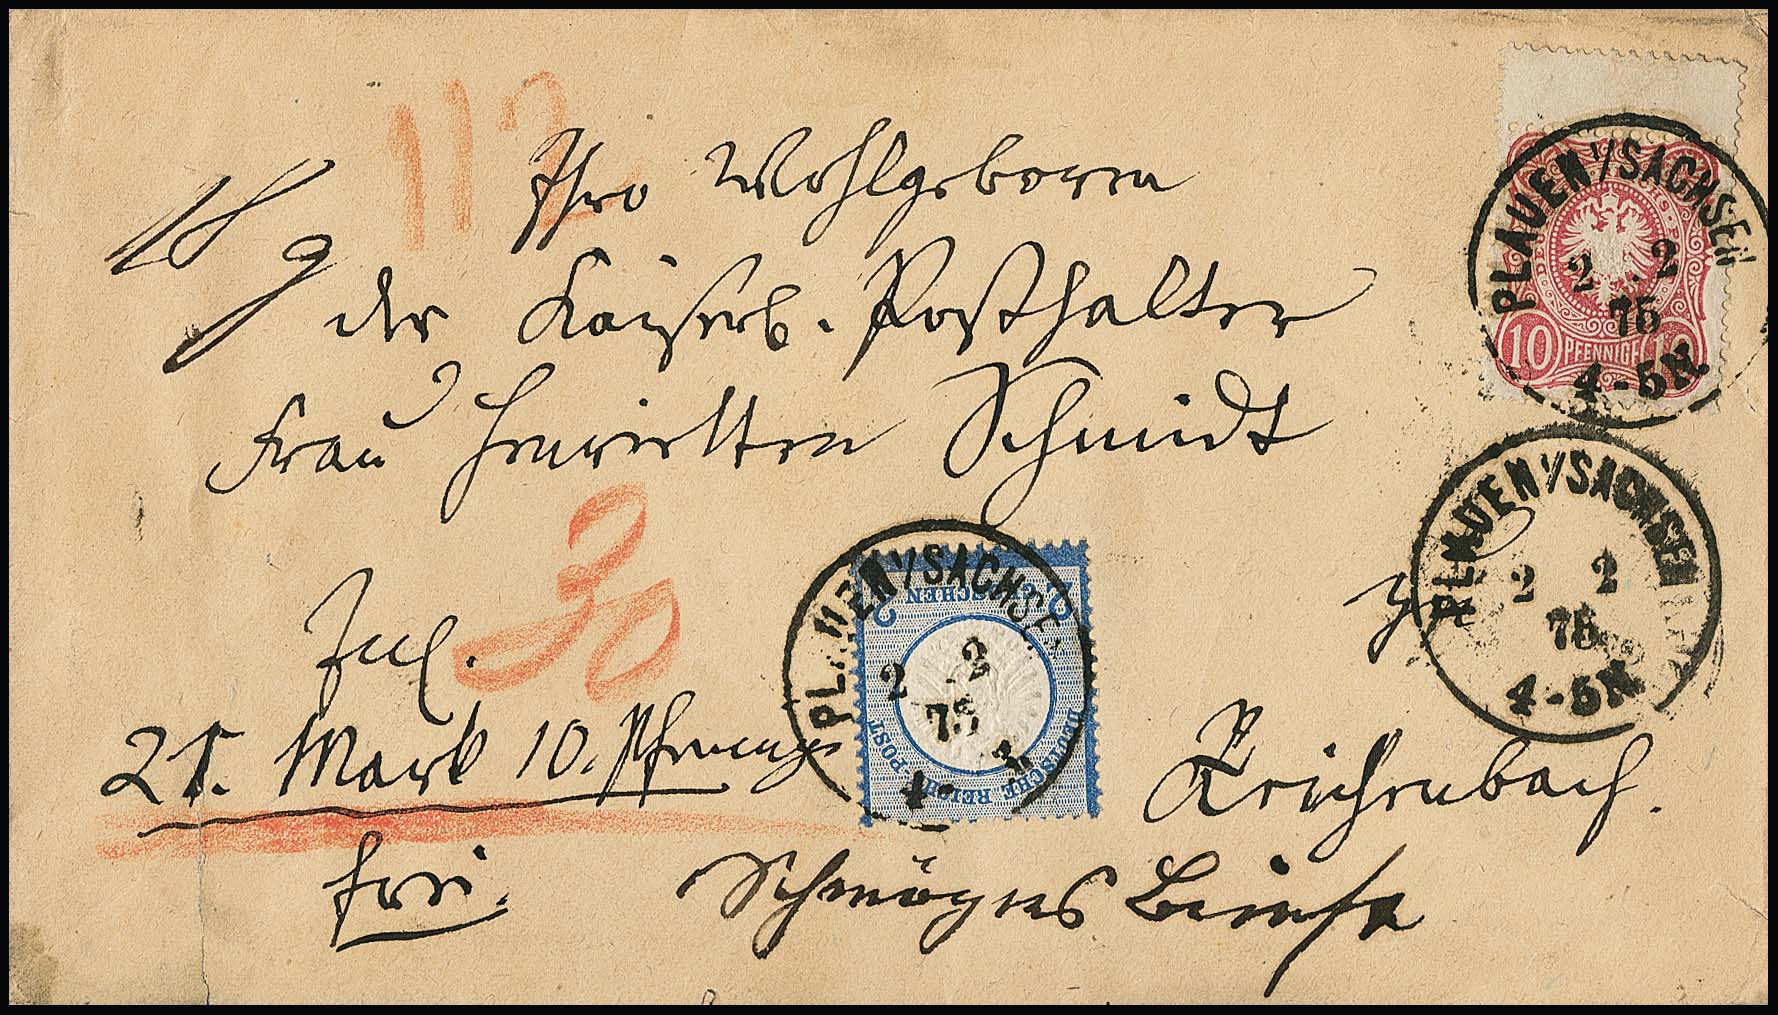 112
18 g
Ihro Wohlgeboren
der Kaiserl. Posthalter
Frau Henrietten Schmidt
30
in
Inl.
21. Mark 10. Pfennig
Reichenbach.
frei.
PLAUEN I/SACHSEN
2 2
75
4-5N.
10 PFENNIGE 10
PLAUEN I/SACHSEN
2 2
75
4-5N
PLAUEN I/SACHSEN
2 2
75
4-
2 GROSCHEN 2
DEUTSCHE REICHS-POST